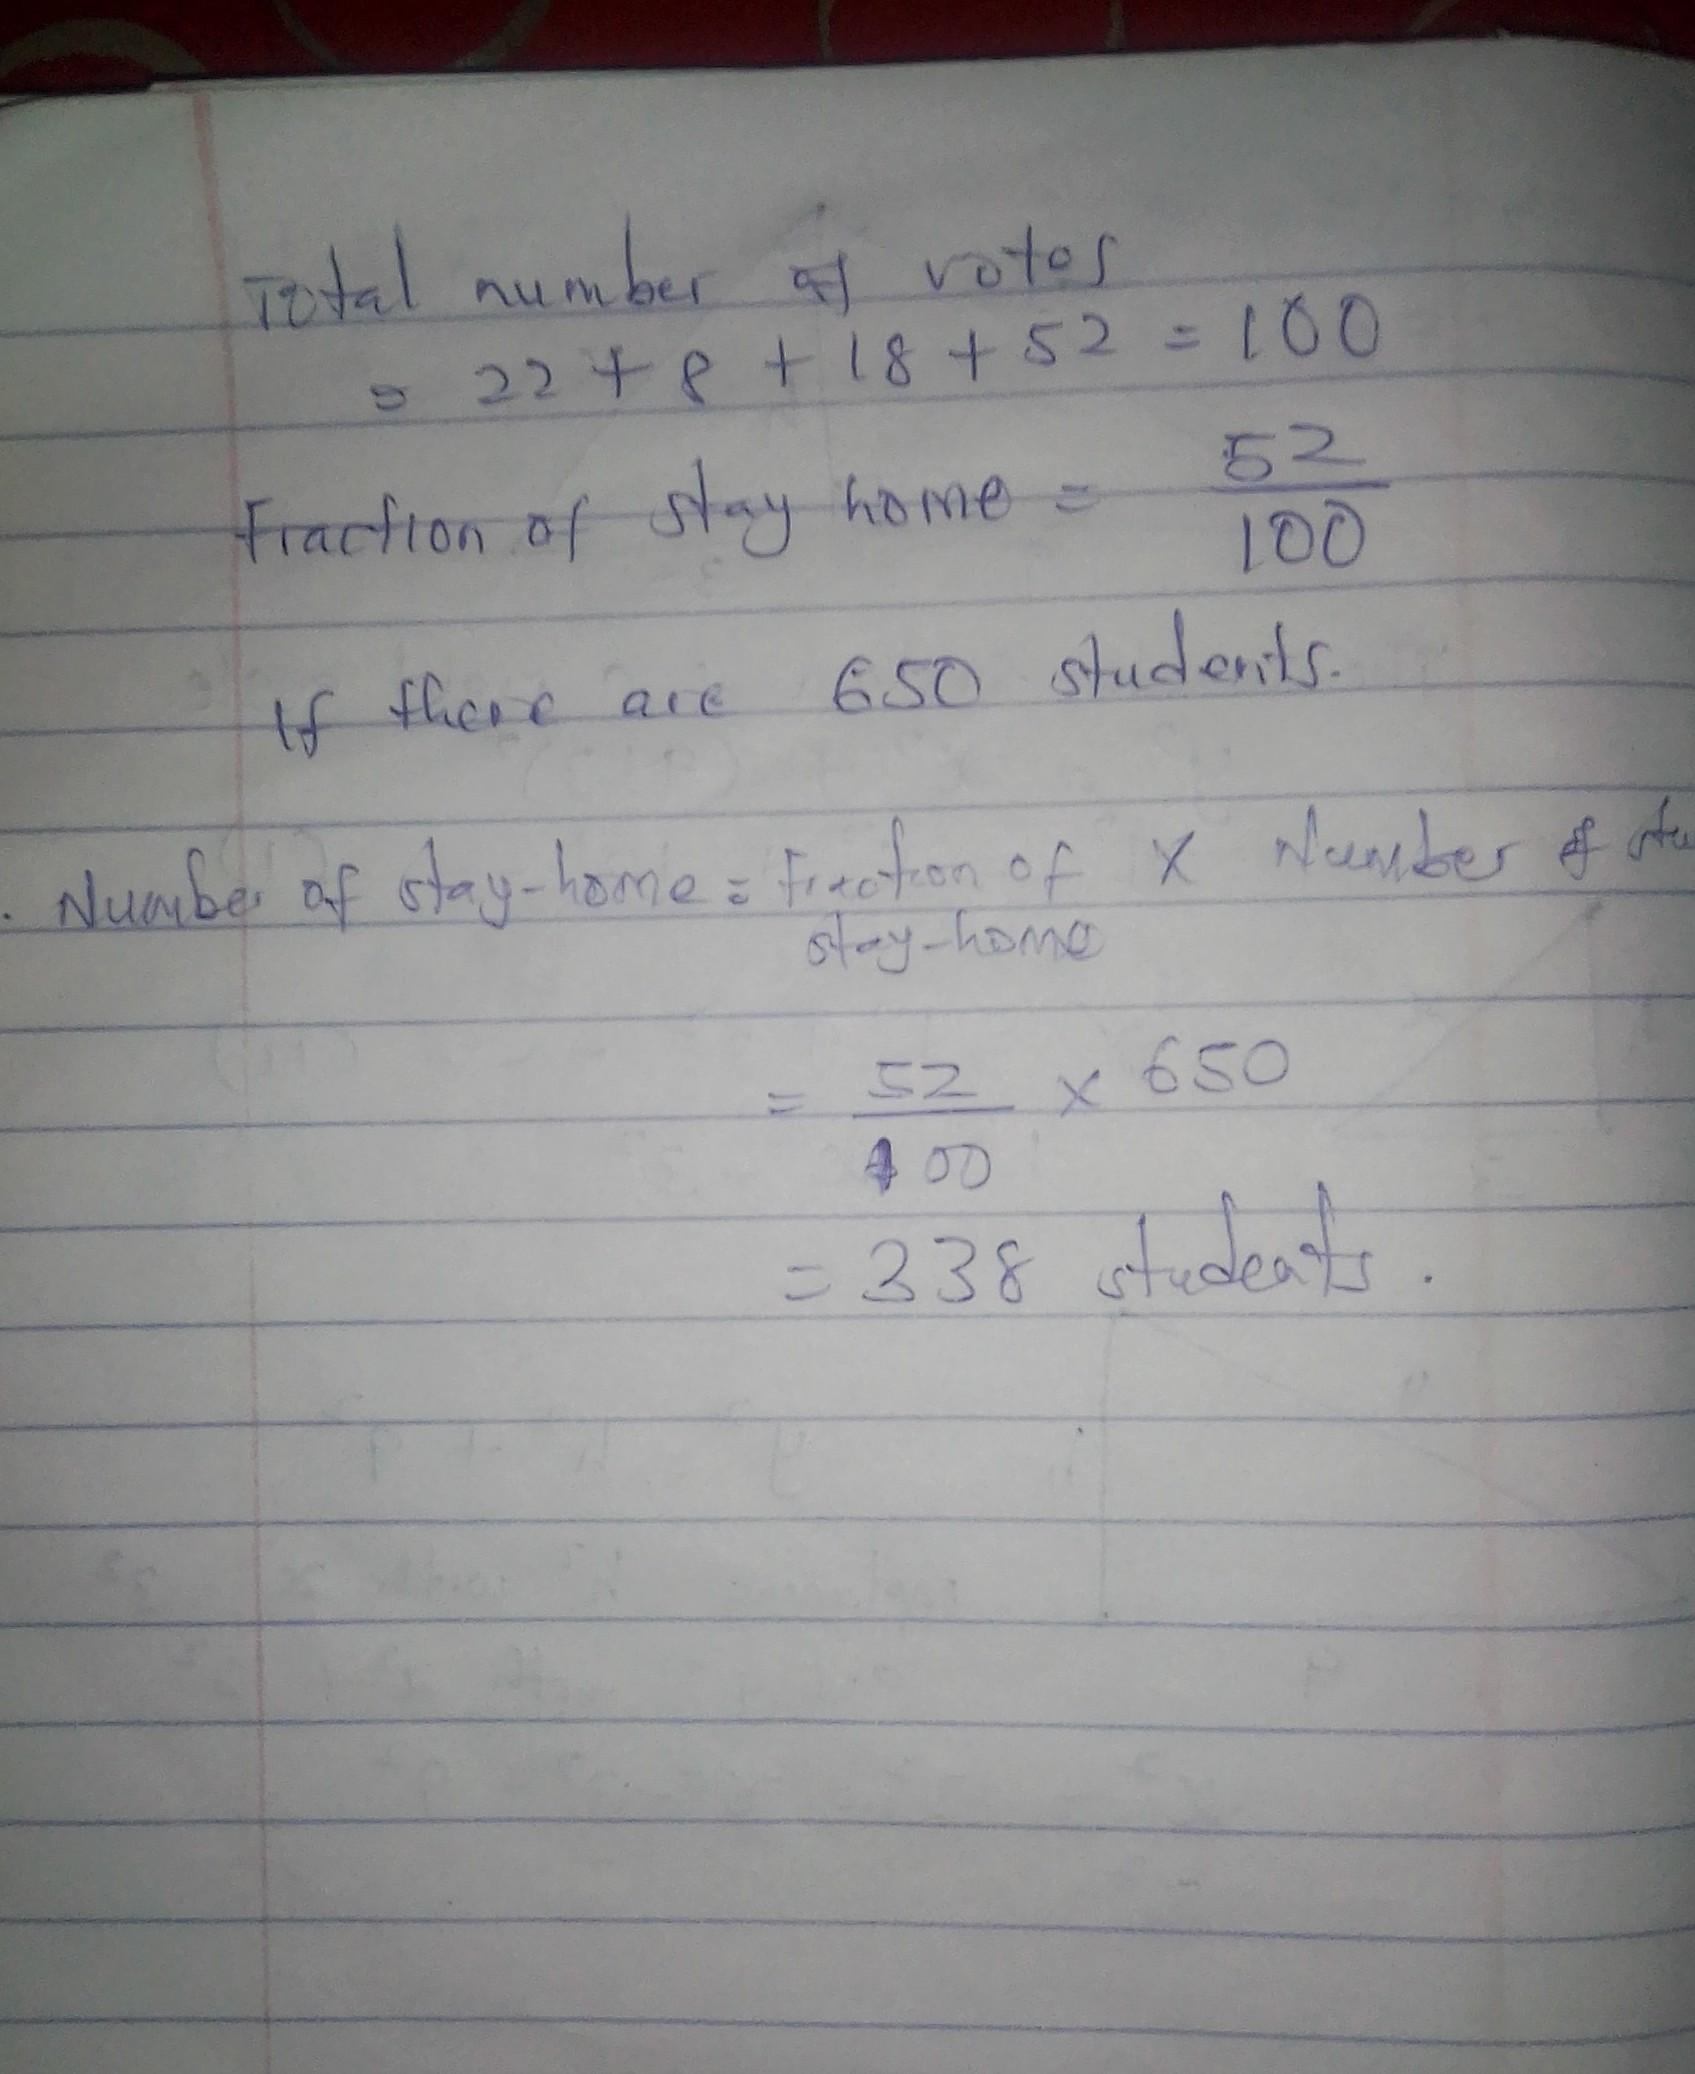 Total number of votes
= 22 + 8 + 18 + 52 = 100
Fraction of stay home = 52/100
If there are 650 students.
. Number of stay-home = Fraction of x Number of stu
stay-home
= 52/100 x 650
= 338 students.